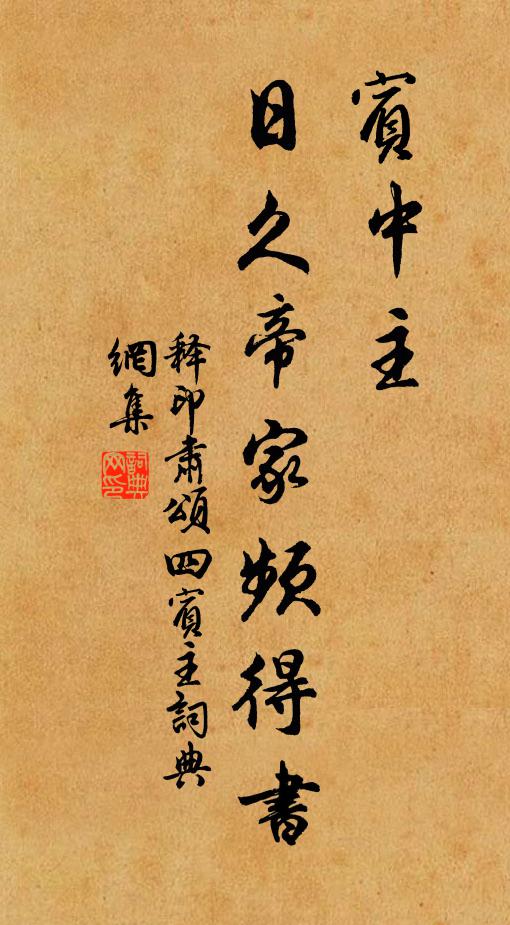 賓中主
日久帝家頻得書
釋印肅頌四賓主詞典
網集
詞典
网印